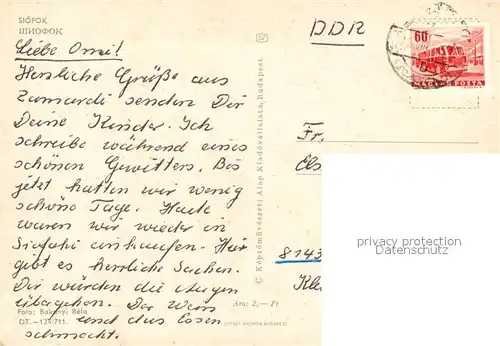 SIÓFOK
ШИОФОК
DDR
60
MAGYAR POSTA
Liebe Omi!
Herzliche Grüße aus
Zamardi senden Dir
Deine Kinder. Ich
schreibe während eines
schönen Gewitters. Bis
jetzt hatten wir wenig
schöne Tage. Heute
waren wir wieder in
Siofok einkaufen. Hier
gibt es herrliche Sachen.
Dir würden die Augen
übergehen. Der Wein
und das Essen
schmeckt.
Foto: Bakonyi Béla
DT.—124/711.
Ára: 2,— Ft
© Képzőművészeti Alap Kiadóvállalata, Budapest
Fr.
Els
8143
Kle
proxypics
delcampe.net